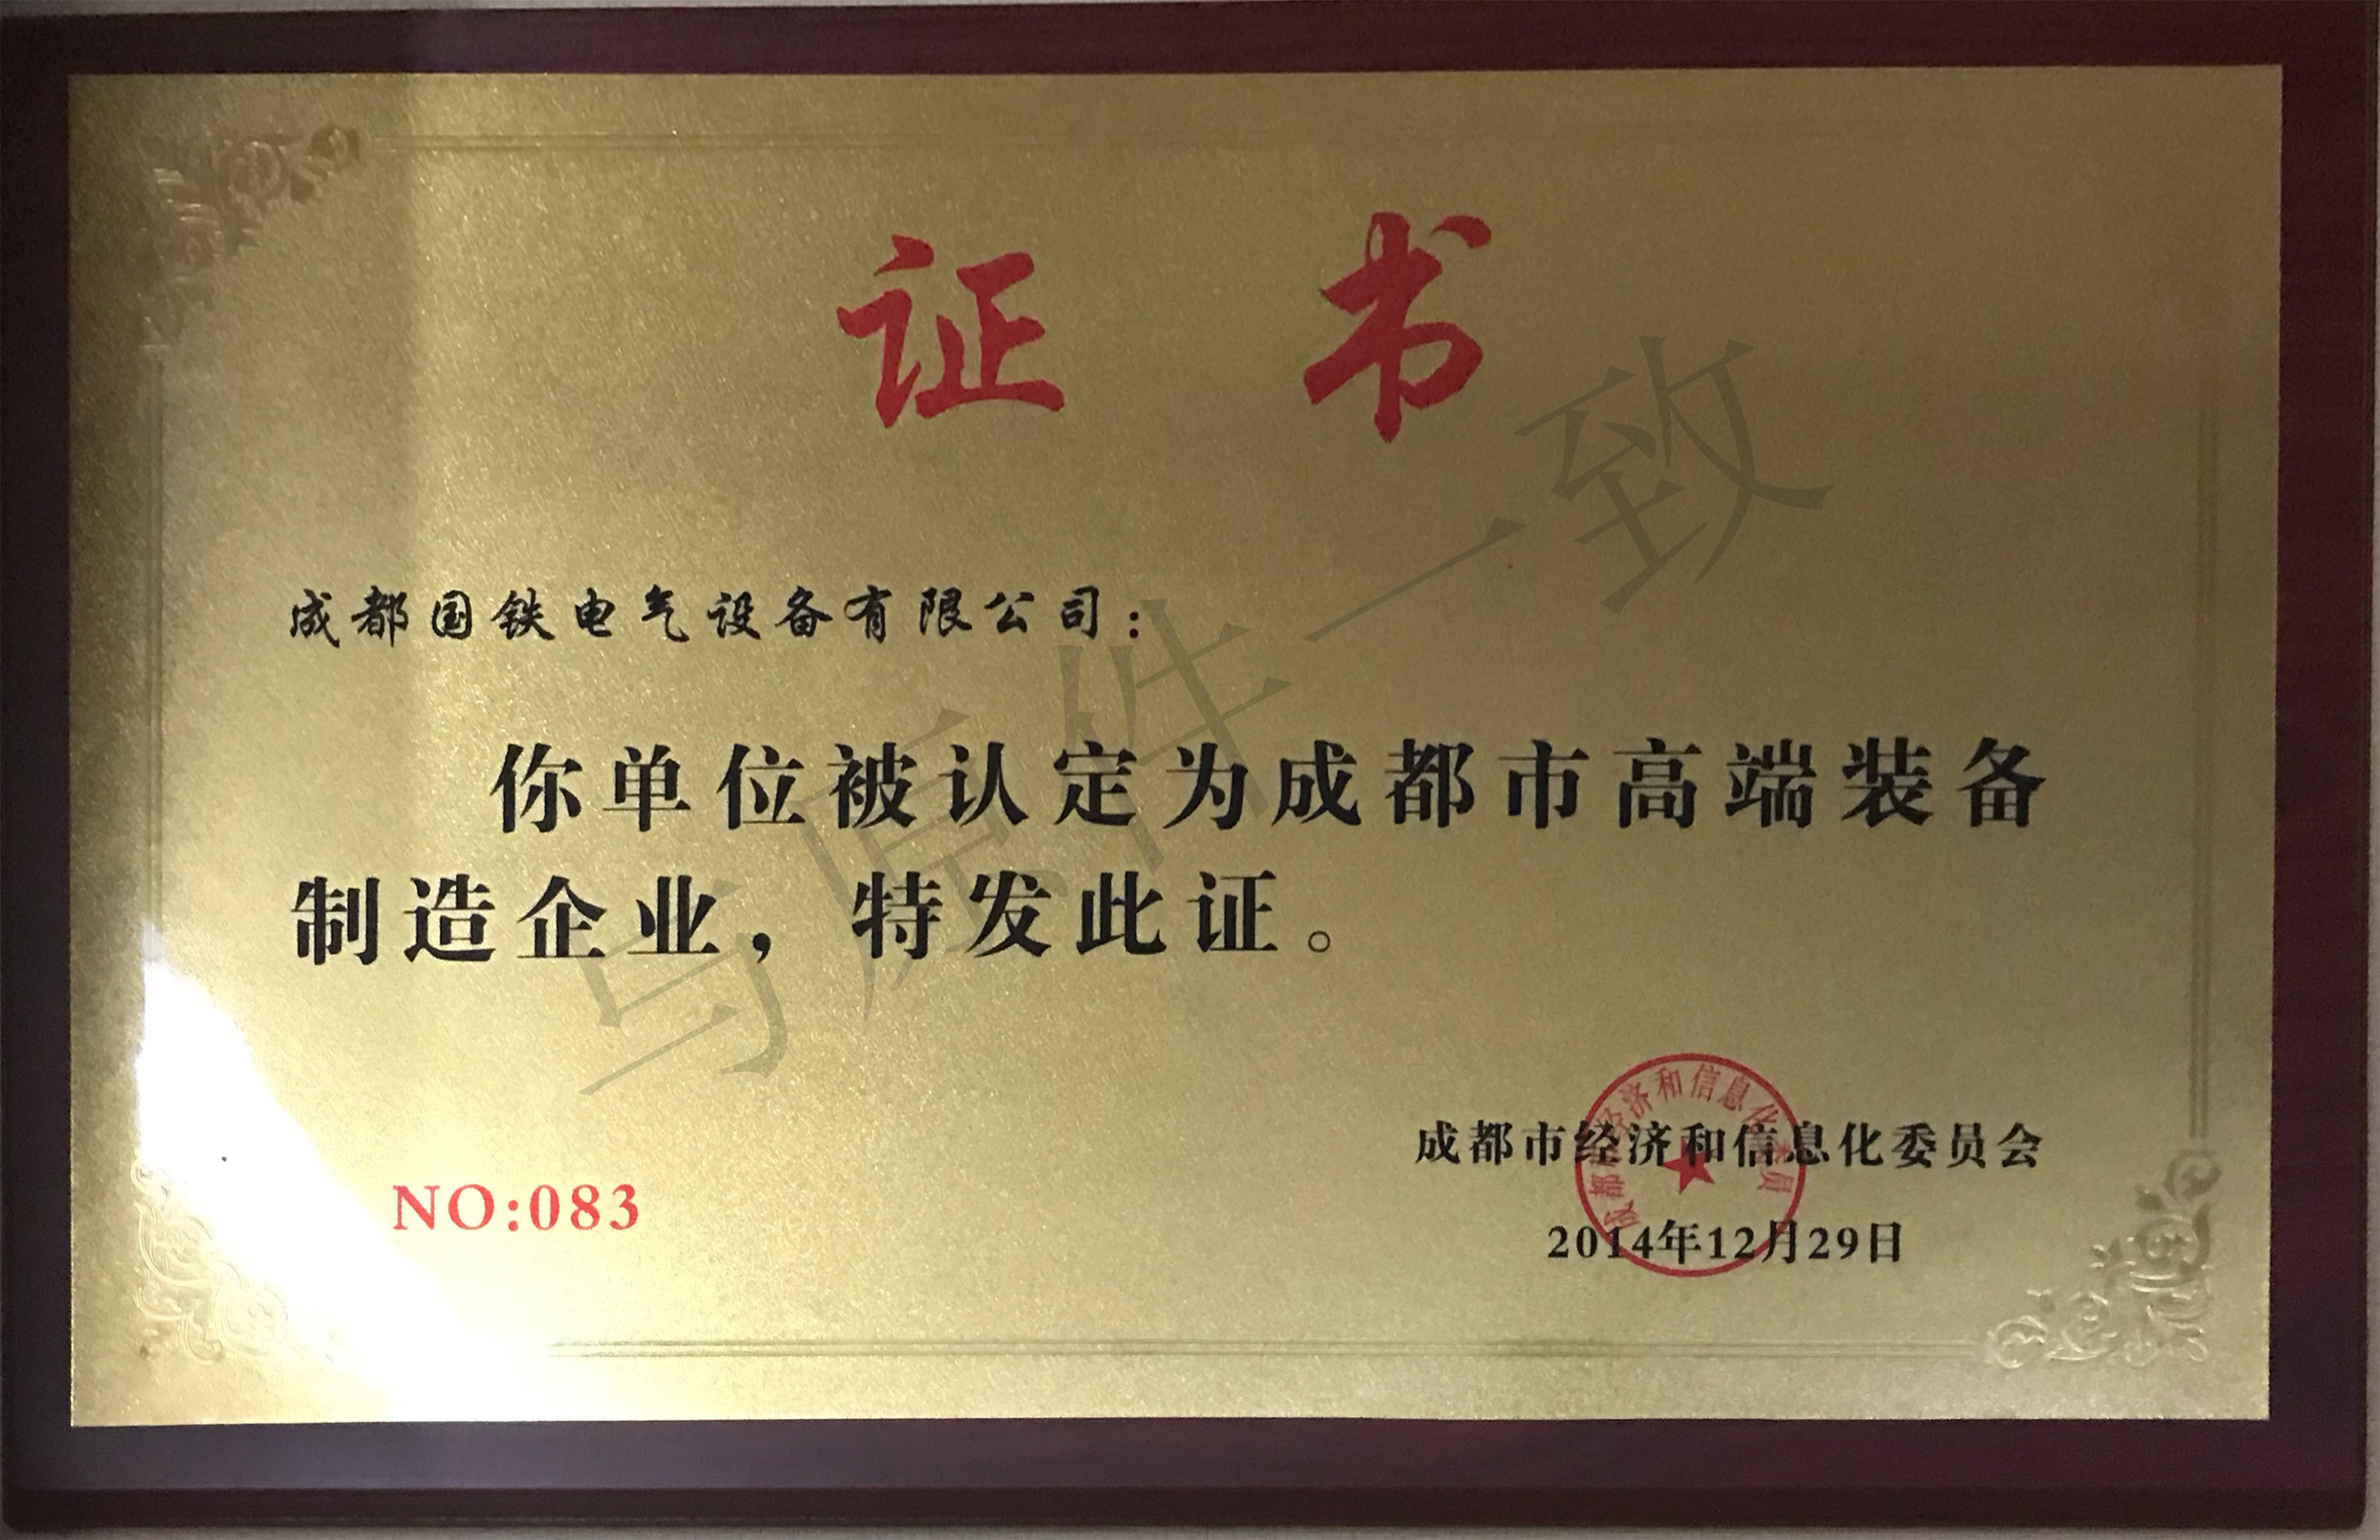 证书
成都国铁电气设备有限公司：
你单位被认定为成都市高端装备
制造企业，特发此证。
成都市经济和信息化委员会
2014年12月29日
NO:083
成都市经济和信息化委员
与原件一致